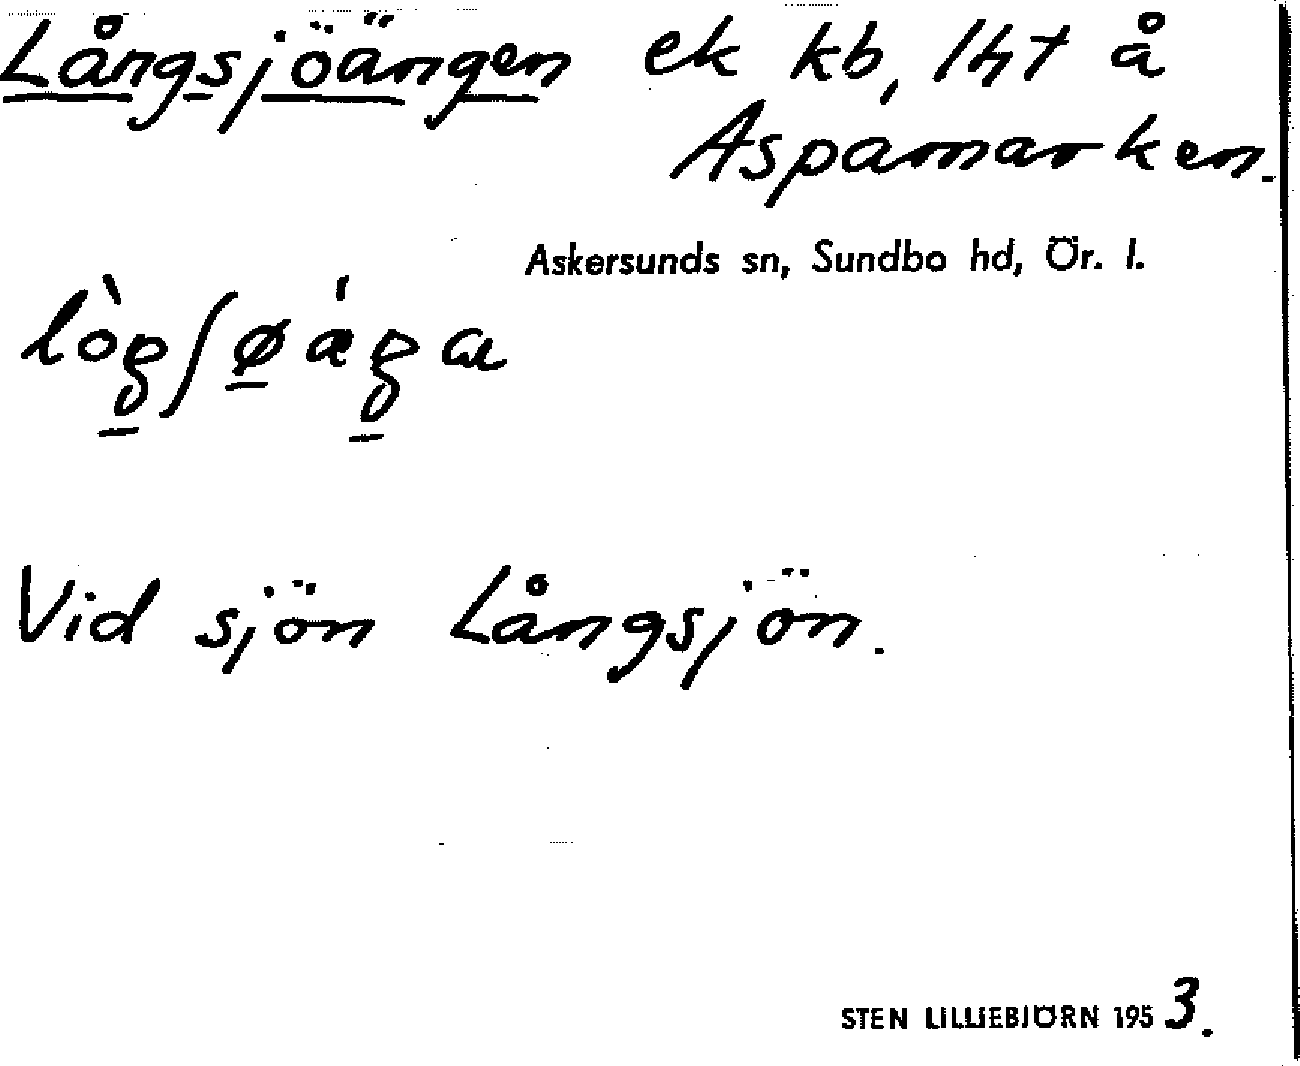 Långsjöängen ek kb, lht å
Aspamarken.
Askersunds sn, Sundbo hd, Ör. l.
Vid sjön Långsjön.
STEN LILLIEBJÖRN 1953.